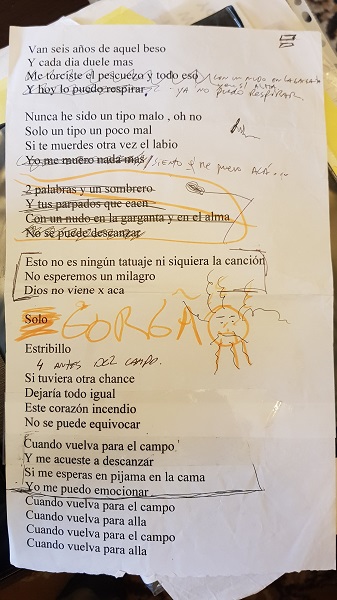 Van seis años de aquel beso
Y cada dia duele mas
Me tórciste el pescuezo y todo eso
CON UN NUDO EN LA GARGANTA
Y hoy lo puedo respirar
YA NO PUEDO RESPIRAR
Nunca he sido un tipo malo , oh no
Solo un tipo un poco mal
Si te muerdes otra vez el labio
Yo me muero nada mas
SIENTO Q ME MUERO ACÁ...
2 palabras y un sombrero
Y tus parpados que caen
Con un nudo en la garganta y en el alma
No se puede descanzar
Esto no es ningún tatuaje ni siquiera la canción
No esperemos un milagro
Dios no viene x aca
Solo
GORGÃO
Estribillo
4 ANTES DEL CAMPO.
Si tuviera otra chance
Dejaría todo igual
Este corazón incendio
No se puede equivocar
Cuando vuelva para el campo
Y me acueste a descanzár
Si me esperas en pijama en la cama
Yo me puedo emocionar
Cuando vuelva para el campo
Cuando vuelva para alla
Cuando vuelva para el campo
Cuando vuelva para alla